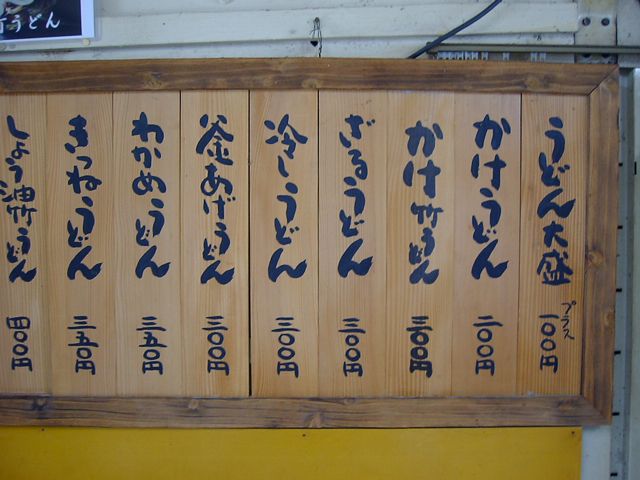 うどん大盛 プラス 一〇〇円
かけうどん 二〇〇円
かけ竹うどん 三〇〇円
ざるうどん 三〇〇円
冷しうどん 三〇〇円
釜あげうどん 三〇〇円
わかめうどん 三五〇円
きつねうどん 三五〇円
しょう油竹うどん 四〇〇円
うどん